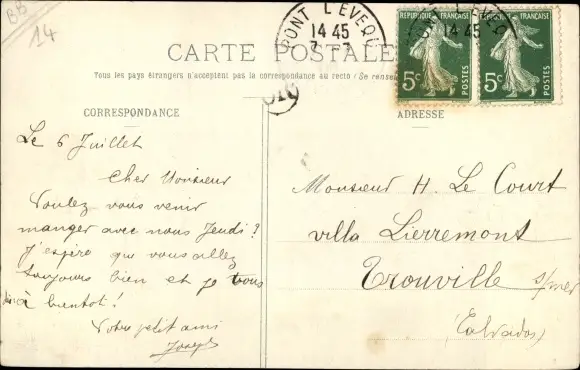 BB
14
PONT L'EVEQUE
14 45
7 - 7
14 45
REPUBLIQUE FRANÇAISE
5c
POSTES
REPUBLIQUE FRANÇAISE
5c
POSTES
CARTE POSTALE
Tous les pays étrangers n'acceptent pas la correspondance au recto (Se rense
CORRESPONDANCE
ADRESSE
Le 6 Juillet
Cher Monsieur
Voulez vous venir
manger avec nous Jeudi ?
J'espère que vous allez
toujours bien et je vous
dis à bientot !
Votre petit ami
Joseph
Monsieur H. Le Court
villa Lierremont
Trouville s/mer
(Calvados)